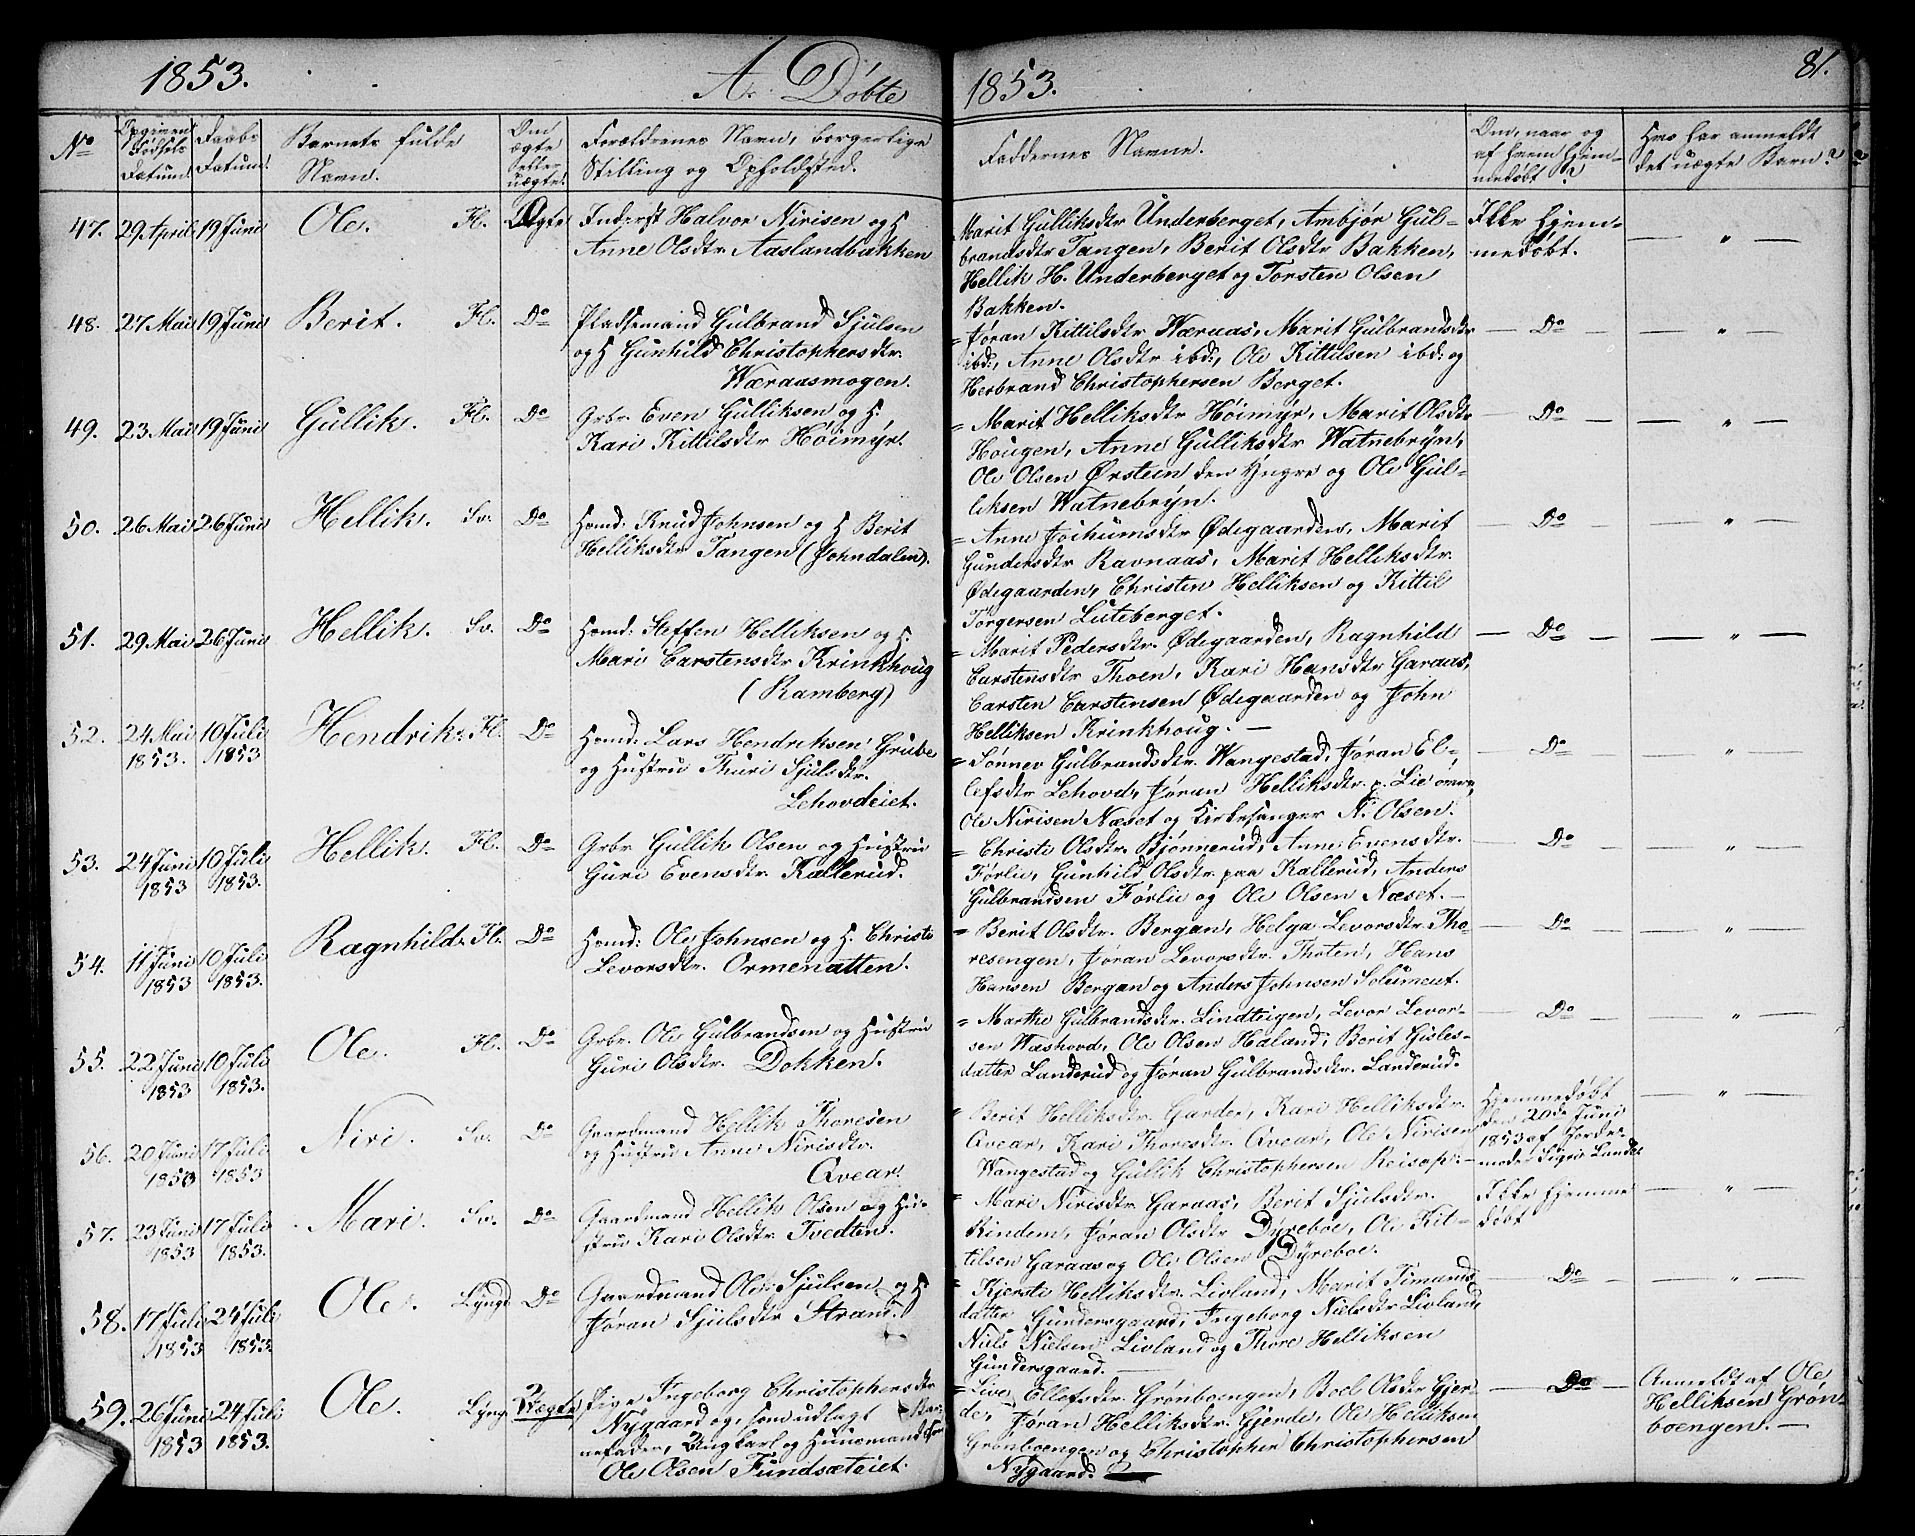 1853.
A. Døbte
1853.
81.
No
Opgiven Fødsels Datum.
Daabs Datum.
Barnets fulde Navn.
Om ægte eller uægte.
Forældrenes Navn, borgerlige Stilling og Opholdsted.
Faddernes Navne.
Om, naar og af hvem hjemmedøbt?
Hvo har anmeldt det uægte Barn?
47. 29 April 19 Juni Ole. Fl. Ægte
Inderst Halvor Nirisen og H.
Anne Olsdtr Aaslandbakken
Marit Gulliksdtr Underberget, Ambjør Gul-
brandsdtr Tangen, Berit Olsdtr Bakken,
Hellik H. Underberget og Torsten Olsen
Bakken.
Ikke hjem-
medøbt.
— " —
48. 27 Mai 19 Juni Berit. Fl. Do
Pladsemand Gulbrand Sjulsen
og H Gunhild Christophersdtr.
Wæraasmogen.
= Jøran Kittilsdtr Wæraas, Marit Gulbrandsdtr
ibd:, Anne Olsdtr ibd:, Ole Kittilsen ibd: og
Herbrand Christophersen Berget.
— Do
— "
49. 23 Mai 19 Juni Gullik. Fl. Do
Grbr. Even Gulliksen og H.
Kari Kittilsdtr Høimyr.
= Marit Helliksdtr Høimyr, Marit Olsdtr
Hougen, Anne Gulliksdtr Watnebryn,
Ole Olsen Ørstein den Yngre og Ole Gul-
liksen Watnebryn.
— Do
— " —
50. 26 Mai 26 Juni Hellik. Sv. Do
Hmd: Knud Johnsen og H Berit
Helliksdtr Tangen (Johndalen).
= Anne Jochumsdtr Ødegaarden, Marit
Gundersdtr Ravnaas, Marit Helliksdtr.
Ødegaarden, Christen Helliksen og Kittil
Torgersen Luteberget.
— Do —
— " —
51. 29 Mai 26 Juni Hellik. Sv. Do
Hmd: Steffen Helliksen og H
Mari Carstensdtr Krinkhoug
(Ramberg)
= Marit Pedersdtr. Ødegaarden, Ragnhild
Carstensdtr Thoen, Kari Hansdtr Garaas,
Carsten Carstensen Ødegaarden og John
Helliksen Krinkhoug. —
— Do —
— " —
52. 24 Mai 10 Juli Hendrik. Fl. Do
1853. 1853
Hmd: Lars Hendriksen Grube
og Hustru Thuri Sjulsdtr.
Lehovdeiet.
= Sønnev Gulbrandsdtr. Wangestad, Jøran El-
lefsdtr Lehovd, Jøran Helliksdtr. p. Lie
Ole Nirisen Næset og Kirkesanger N. Olsen.
— Do
"
53. 24 Juni 10 Juli Hellik. Fl. Do
1853 1853.
Grbr Gullik Olsen og Hustru
Guri Evensdtr. Kallerud.
= Christi Olsdtr. Bjønnerud, Anne Evensdtr.
Førlie, Gunhild Olsdtr. paa Kallerud, Anders
Gulbrandsen Førlie og Ole Olsen Næset. —
— Do
— " —
54. 11 Juni 10 Juli Ragnhild. Fl. Do
1853 1853.
Hmd: Ole Johnsen og H. Christi
Levorsdtr. Ormenatten.
= Berit Olsdtr. Bergan, Helga Levorsdtr Tho-
resengen, Jøran Levorsdtr. Thoten, Hans
Hansen Bergan og Anders Johnsen
— Do —
— " —
55. 22 Juni 10 Juli Ole. Fl. Do
1853 1853.
Grbr. Ole Gulbrandsen og Hustru
Guri Olsdtr. Dokken.
= Marthe Gulbrandsdtr. Lindteigen, Levor Levor-
sen Washovd, Ole Olsen Haland, Berit Gisles-
datter Landerud og Jøran Gulbrandsdtr. Landerud.
— Do —
— " —
56. 20 Juni 17 Juli Niri. Sv. Do
1853 1853
Gaardmand Hellik Thoresen
og Hustru Anne Nirisdtr.
Qvear.
= Berit Helliksdtr. Garder, Kari Helliksdtr.
Qvear, Kari Thoresdtr. Qvear, Ole Nirisen
Wangestad og Gullik Christophersen
Hjemmedøbt
den 20de Juni
1853 af Jorde-
moder Sigrie Lunde
— " —
57. 23 Juni 17 Juli Mari. Sv. Do
1853 1853.
Gaardmand Hellik Olsen og Hu-
stru Kari Olsdtr. Tvedten.
= Mari Nirisdtr Garaas, Berit Sjulsdtr.
Rindem, Jøran Olsdtr Dyreboe, Ole Kit-
tilsen Garaas og Ole Olsen Dyreboe.
Ikke hjemme
døbt
— " —
58. 17 Juli 24 Juli Ole. Lyngd Do
1853 1853.
Gaardmand Ole Sjulsen og H
Jøran Sjulsdtr Strand.
= Kjersti Helliksdtr. Livland, Marit Simonds-
datter Gundersgaard, Ingeborg Nielsdtr Livland,
Niels Nielsen Livland og Thore Helliksen
Gundersgaard. —
— Do —
— " —
59. 26 Juni 24 Juli Ole. Lyngd Uægte
1853 1853.
Pige Ingeborg Christophersdtr
Nygaard og, som udlagt Bar-
nefader, Ungkarl og Huusmand
Ole Olsen Fundsæteiet.
= Live Ellefsdtr. Grønboengen, Boel Olsdtr Gjer-
de, Jøran Helliksdtr. Gjerde, Ole Helliksen
Grønboengen og Christopher Christophersen
Nygaard.
— Do —
Anmeldt af Ole
Helliksen Grøn-
boengen. —